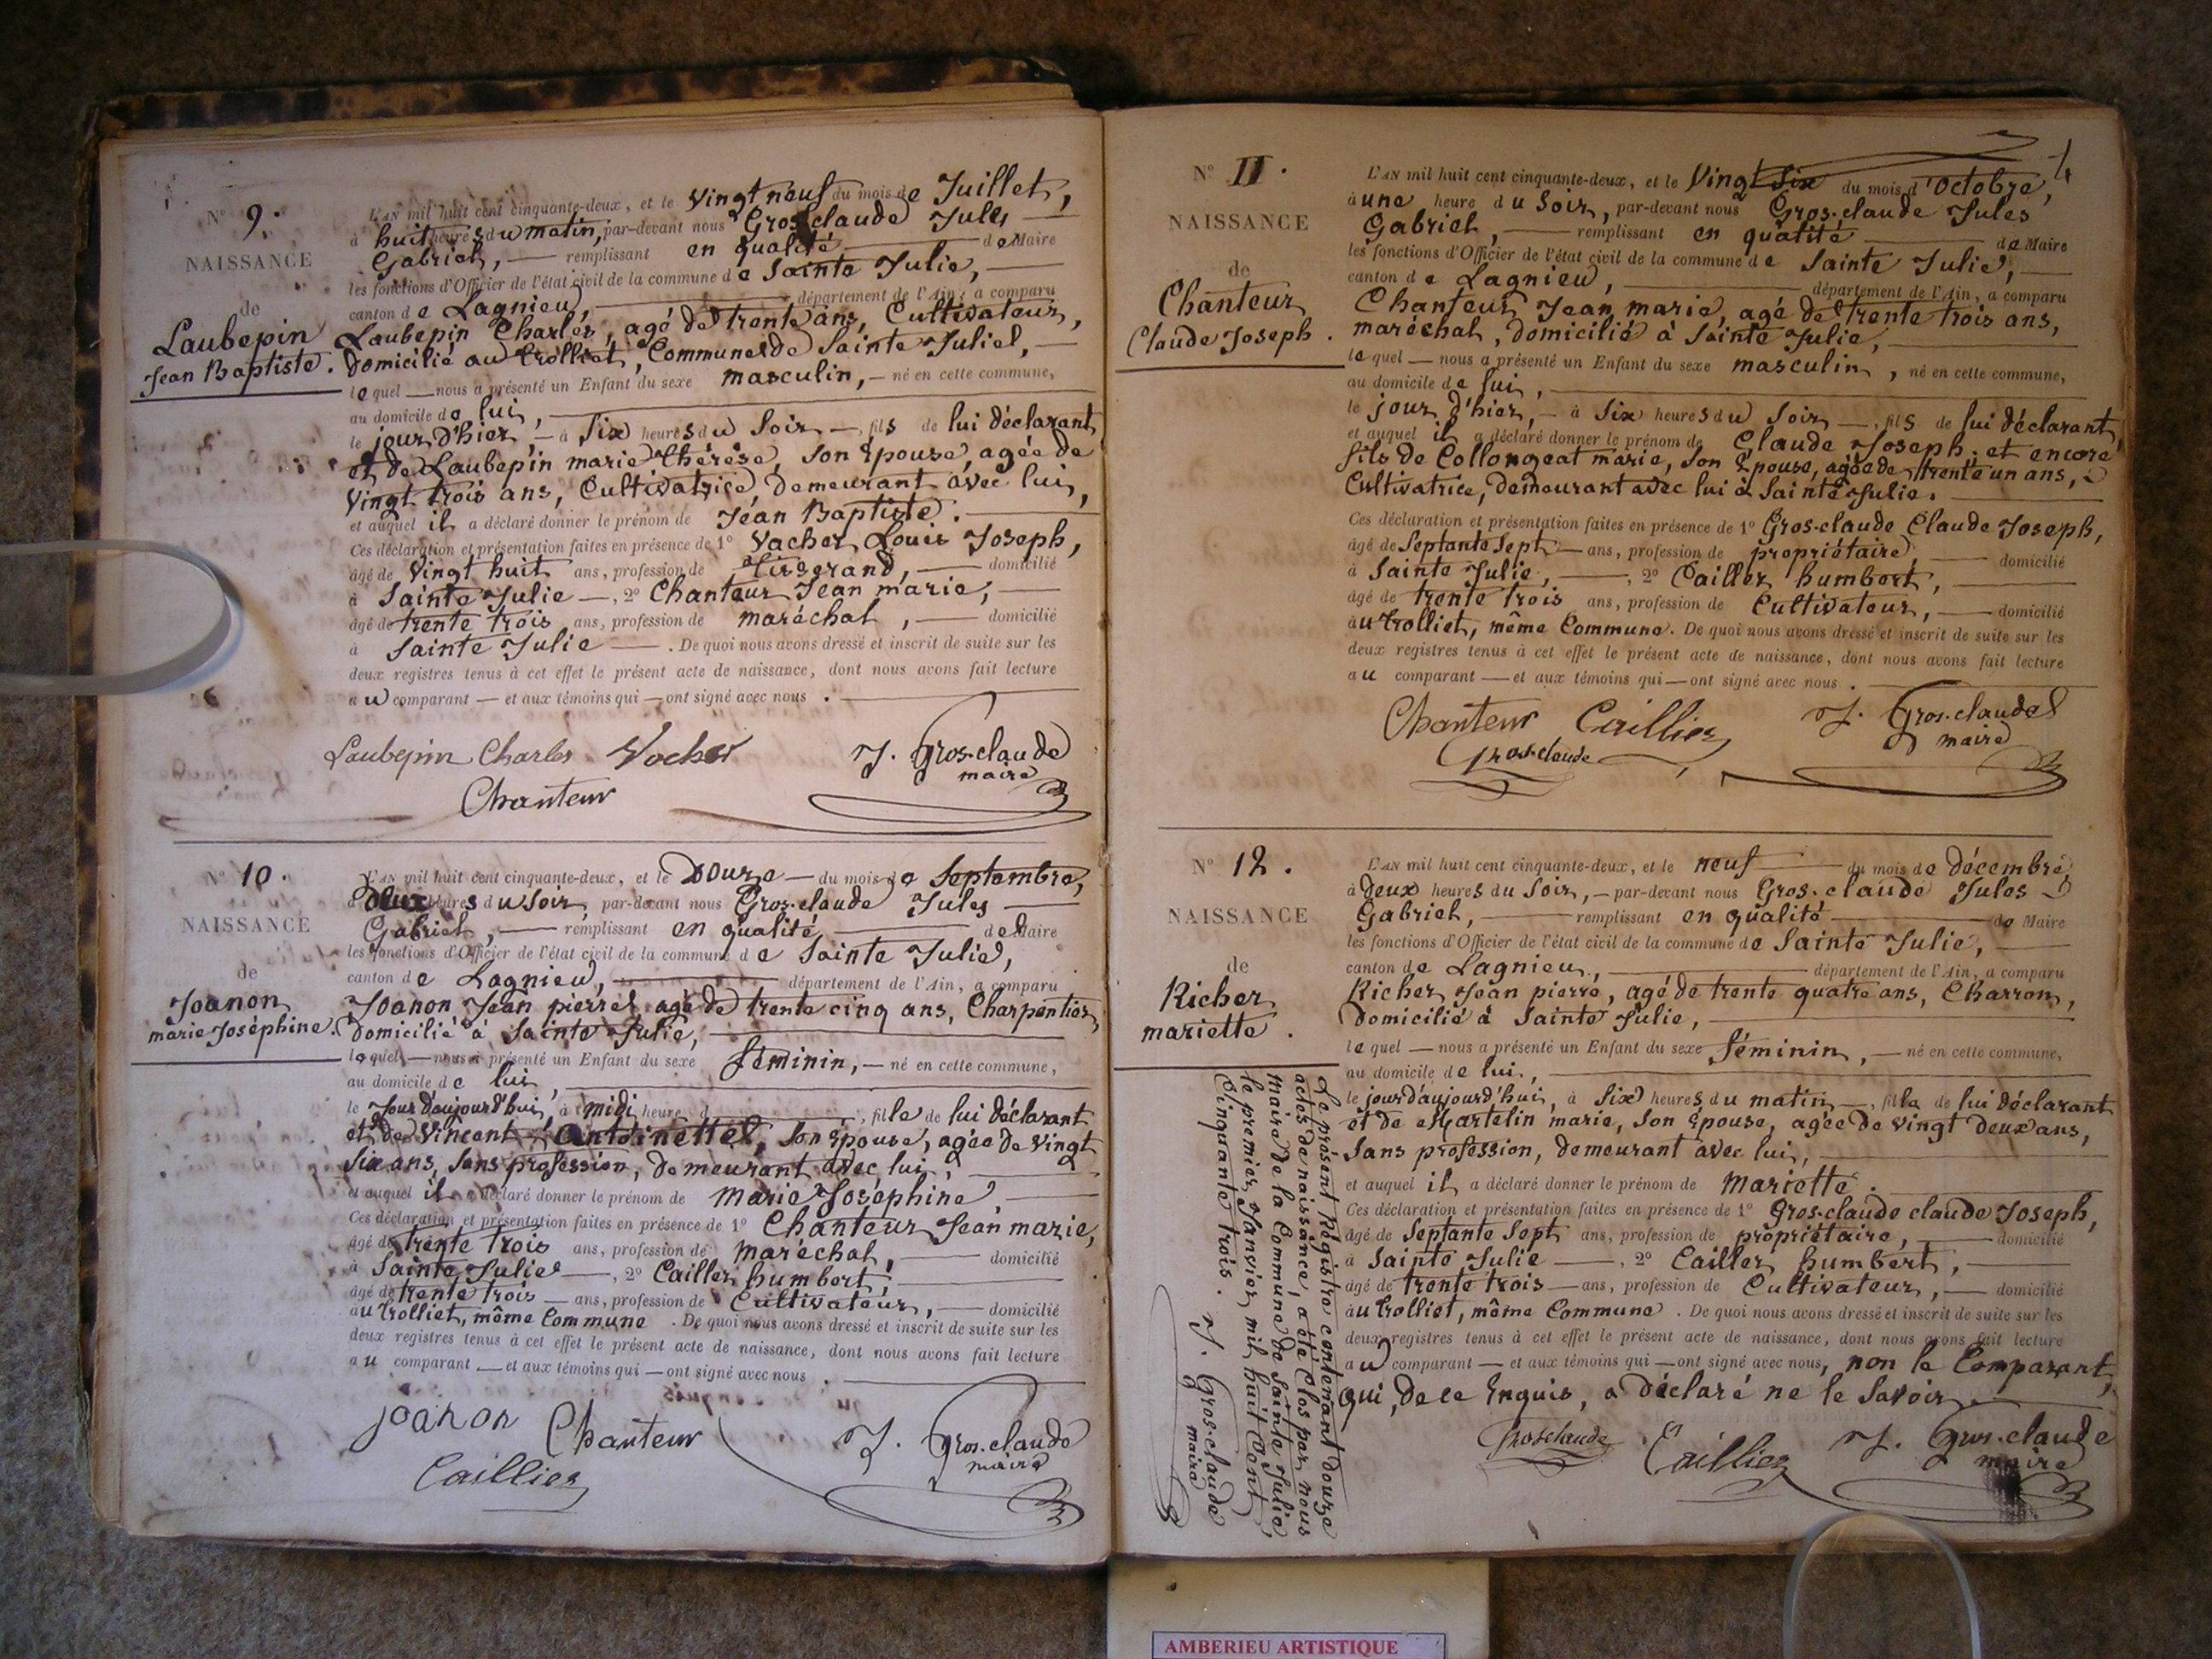 N° 9.
NAISSANCE
de
Laubepin
Jean Baptiste.
L'AN mil huit cent cinquante-deux, et le Vingt neuf du mois de Juillet,
à huit heures du matin, par-devant nous Gros-claude Jules
Gabriel, remplissant en qualité de Maire
les fonctions d'Officier de l'état civil de la commune de Sainte Julie,
canton de Lagnieu, département de l'Ain, a comparu
Laubepin Charles, agé de trente ans, Cultivateur,
domicilié au trolliet, Commune de Sainte Julie,
lequel nous a présenté un Enfant du sexe masculin, né en cette commune,
au domicile de lui,
le jour d'hier, à Six heures du Soir, fils de lui déclarant
et de Laubepin marie thérèse, Son Epouse, agée de
Vingt trois ans, Cultivatrice, demeurant avec lui,
et auquel il a déclaré donner le prénom de Jean Baptiste.
Ces déclaration et présentation faites en présence de 1° Vacher Louis Joseph,
âgé de Vingt huit ans, profession de tisserand, domicilié
à Sainte Julie, 2° Chanteur Jean marie,
âgé de trente trois ans, profession de maréchal, domicilié
à Sainte Julie. De quoi nous avons dressé et inscrit de suite sur les
deux registres tenus à cet effet le présent acte de naissance, dont nous avons fait lecture
au comparant et aux témoins qui ont signé avec nous.
Laubepin Charles Vacher J. Gros-claude
maire
Chanteur
N° 10.
NAISSANCE
de
Joanon
marie Joséphine.
L'AN mil huit cent cinquante-deux, et le Douze du mois de Septembre,
à deux heures du Soir, par-devant nous Gros-claude Jules
Gabriel, remplissant en qualité de Maire
les fonctions d'Officier de l'état civil de la commune de Sainte Julie,
canton de Lagnieu, département de l'Ain, a comparu
Joanon Jean pierre, agé de trente cinq ans, Charpentier,
Domicilié à Sainte Julie,
lequel nous a présenté un Enfant du sexe féminin, né en cette commune,
au domicile de lui,
le Jour d'aujourd'hui, à midi heure d, fille de lui déclarant
et de Vincent Antoinette, Son Epouse, agée de Vingt
Six ans, Sans profession, demeurant avec lui,
et auquel il a déclaré donner le prénom de Marie Joséphine,
Ces déclaration et présentation faites en présence de 1° Chanteur Jean marie,
âgé de trente trois ans, profession de maréchal, domicilié
à Sainte Julie, 2° Cailler humbert,
âgé de trente trois ans, profession de Cultivateur, domicilié
au trolliet, même Commune. De quoi nous avons dressé et inscrit de suite sur les
deux registres tenus à cet effet le présent acte de naissance, dont nous avons fait lecture
au comparant et aux témoins qui ont signé avec nous.
joanon Chanteur J. Gros-claude
maire
Caillier
N° 11.
NAISSANCE
de
Chanteur
Claude Joseph.
L'AN mil huit cent cinquante-deux, et le Vingt Six du mois d'Octobre,
à une heure du Soir, par-devant nous Gros-claude Jules
Gabriel, remplissant en qualité de Maire
les fonctions d'Officier de l'état civil de la commune de Sainte Julie,
canton de Lagnieu, département de l'Ain, a comparu
Chanteur Jean marie, agé de trente trois ans,
maréchal, domicilié à Sainte Julie,
lequel nous a présenté un Enfant du sexe masculin, né en cette commune,
au domicile de lui,
le jour d'hier, à Six heures du Soir, fils de lui déclarant,
et auquel il a déclaré donner le prénom de Claude Joseph. et encore
fils de Collongeat marie, Son Epouse, agée de trente un ans,
Cultivatrice, demeurant avec lui à Sainte Julie.
Ces déclaration et présentation faites en présence de 1° Gros-claude Claude Joseph,
âgé de Septante Sept ans, profession de propriétaire, domicilié
à Sainte Julie, 2° Cailler humbert,
âgé de trente trois ans, profession de Cultivateur, domicilié
au trolliet, même Commune. De quoi nous avons dressé et inscrit de suite sur les
deux registres tenus à cet effet le présent acte de naissance, dont nous avons fait lecture
au comparant et aux témoins qui ont signé avec nous.
Chanteur Caillier J. Gros-claude
maire
Grosclaude
N° 12.
NAISSANCE
de
Richer
mariette.
L'AN mil huit cent cinquante-deux, et le neuf du mois de décembre,
à deux heures du Soir, par-devant nous Gros-claude Jules
Gabriel, remplissant en qualité de Maire
les fonctions d'Officier de l'état civil de la commune de Sainte Julie,
canton de Lagnieu, département de l'Ain, a comparu
Richer Jean pierre, agé de trente quatre ans, Charron,
domicilié à Sainte Julie,
lequel nous a présenté un Enfant du sexe féminin, né en cette commune,
au domicile de lui,
le jour d'aujourd'hui, à Six heures du matin, fille de lui déclarant
et de Martelin marie, Son Epouse, agée de vingt deux ans,
Sans profession, demeurant avec lui,
et auquel il a déclaré donner le prénom de Mariette.
Ces déclaration et présentation faites en présence de 1° Gros-claude claude Joseph,
âgé de Septante Sept ans, profession de propriétaire, domicilié
à Sainte Julie, 2° Cailler humbert,
âgé de trente trois ans, profession de Cultivateur, domicilié
au trolliet, même Commune. De quoi nous avons dressé et inscrit de suite sur les
deux registres tenus à cet effet le présent acte de naissance, dont nous avons fait lecture
au comparant et aux témoins qui ont signé avec nous, non le Comparant,
qui, de ce Enquis, a déclaré ne le Savoir.
Grosclaude Caillier J. Gros-claude
maire
Le présent Régistre contenant douze
actes de naissance, a été Clos par nous
Maire de la Commune de Sainte Julie
le premier Janvier mil huit cent
Cinquante trois.
J. Gros-claude
maire
AMBERIEU ARTISTIQUE